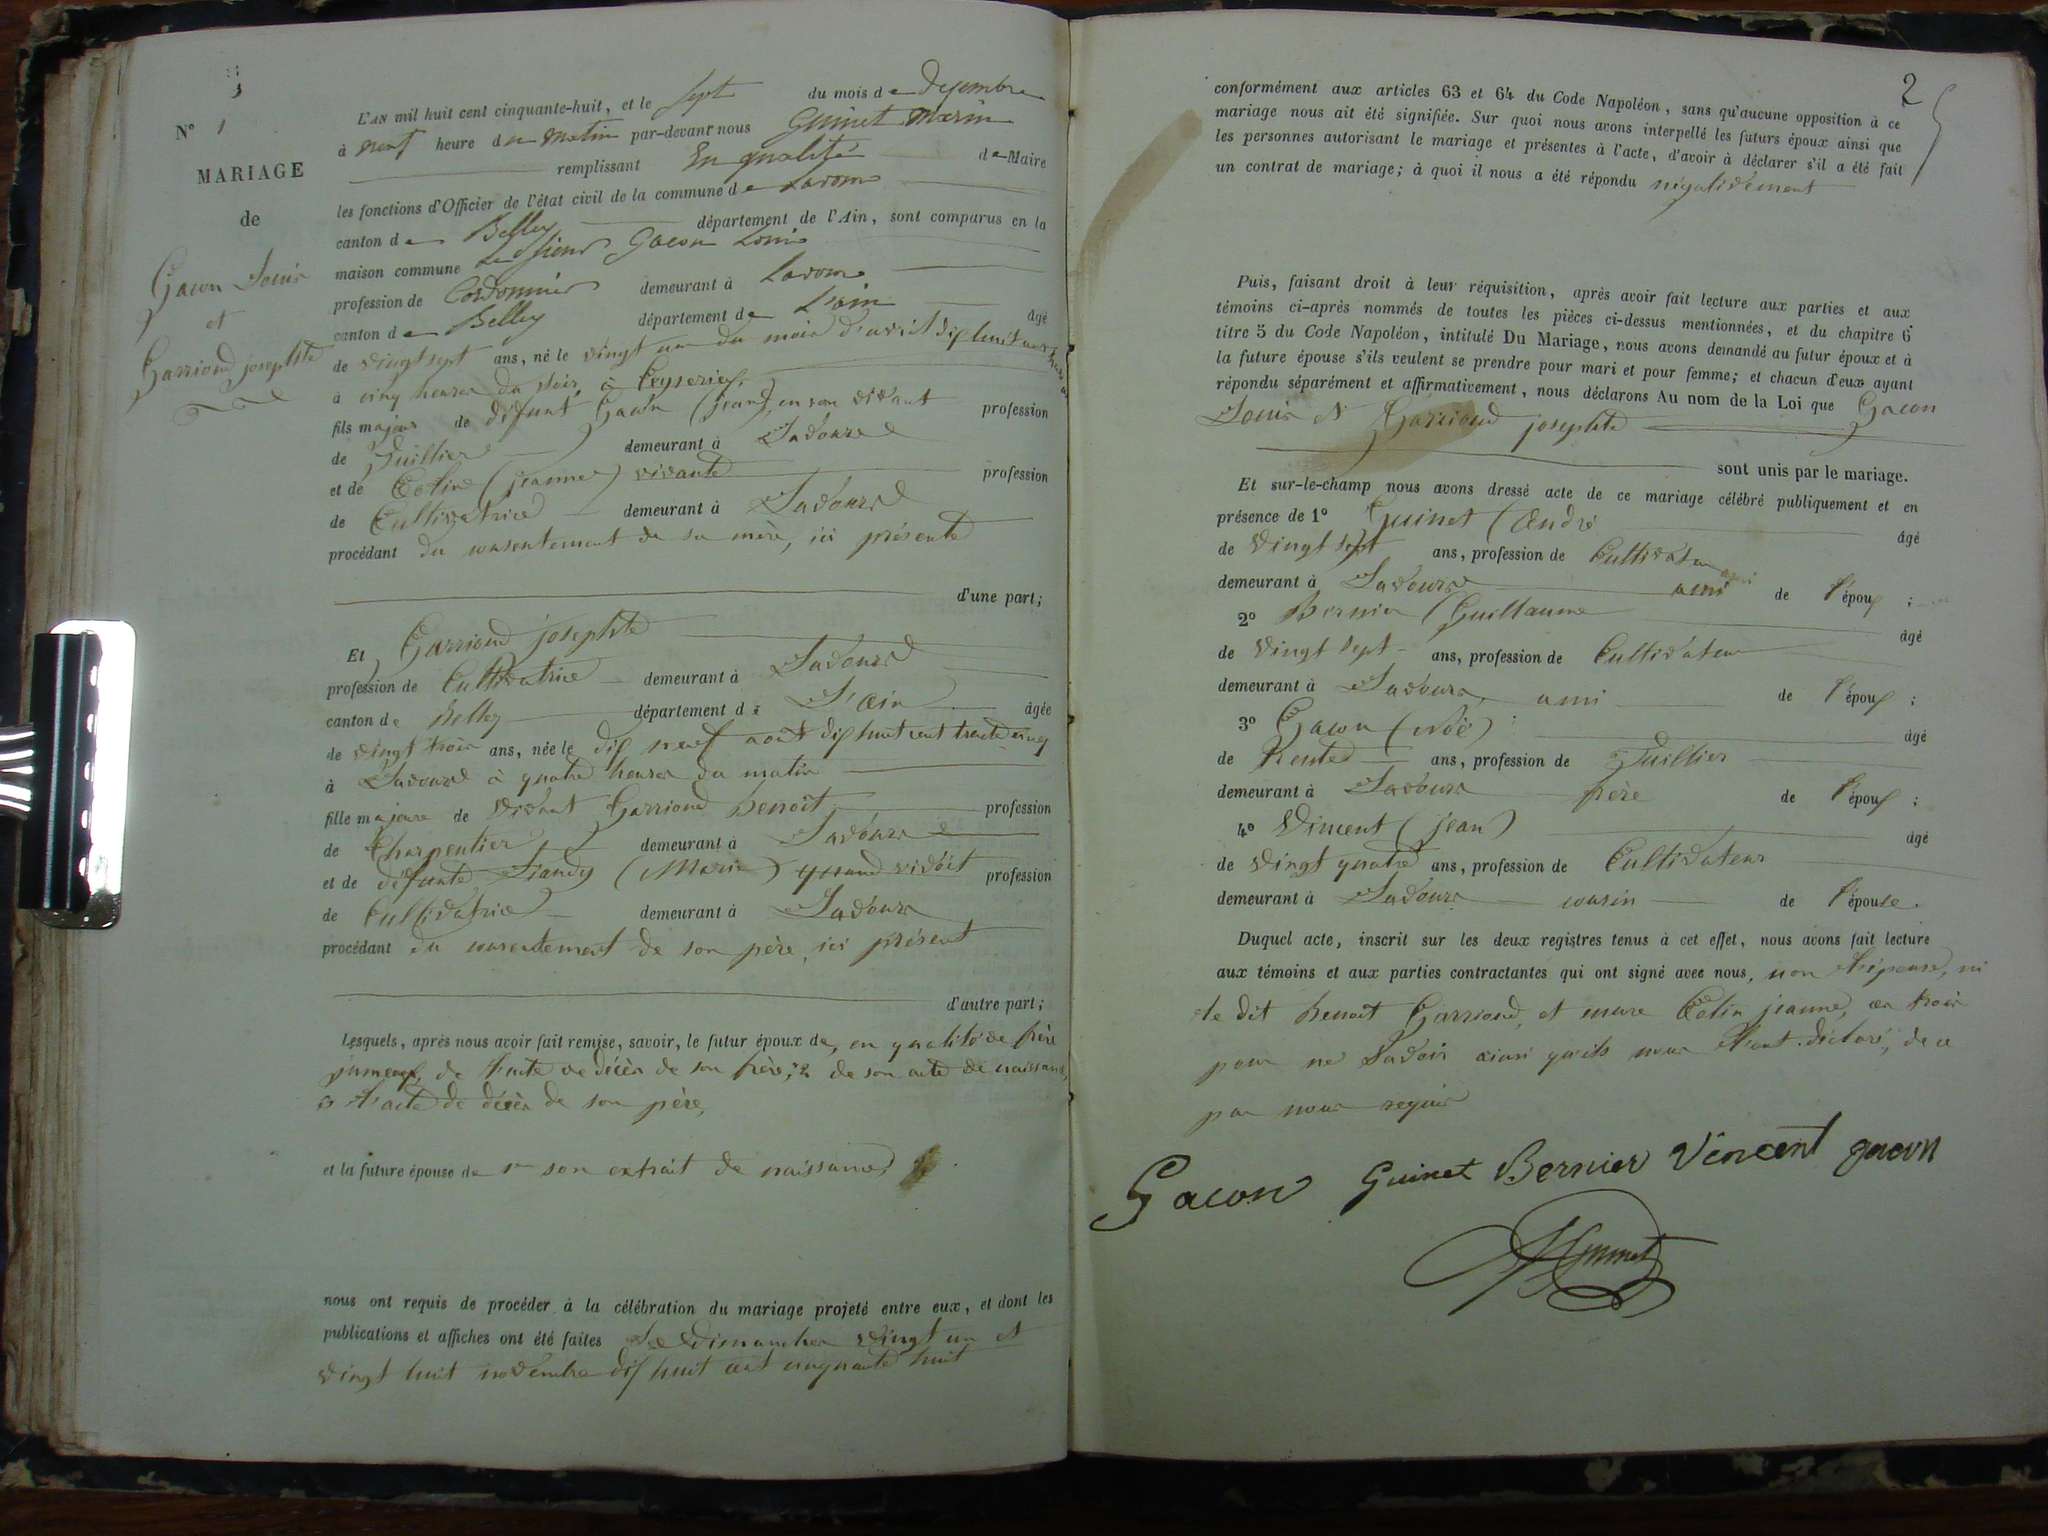 N° 1
MARIAGE
de
Gacon Louis
et
Garrioud josephte
L'AN mil huit cent cinquante-huit, et le sept du mois de Decembre
à neuf heure du matin par-devant nous Guinet Marin
remplissant En qualité de Maire
les fonctions d'Officier de l'état civil de la commune de Lavour
canton de Belley département de l'Ain, sont comparus en la
maison commune Le Sieur Gacon Louis
profession de Cordonnier demeurant à Lavour
canton de Belley département de L'ain âgé
de vingt sept ans, né le vingt un du mois d'avril dix huit cent
à cinq heures du soir, à Ceyserieu,
fils majeur de défunt Gacon (jean), en son vivant profession
de Tuillier demeurant à Lavours
et de Colin (jeanne) vivante profession
de Cultivatrice demeurant à Lavours
procédant du consentement de sa mère, ici présente
d'une part;
Et Garrioud josephte
profession de Cultivatrice demeurant à Lavours
canton de Belley département de L'ain âgée
de vingt trois ans, née le dix neuf août dix huit cent trente cinq
à Lavours à quatre heures du matin
fille majeure de vivant Garrioud Benoît, profession
de Charpentier demeurant à Lavours
et de défunte Siandy (Marie) quand vivoit profession
de Cultivatrice demeurant à Lavours
procédant du consentement de son père, ici présent
d'autre part;
Lesquels, après nous avoir fait remise, savoir, le futur époux de, en qualité de frère
jumeau, de l'acte de décès de son frère, 2 de son acte de naissance,
3 l'acte de décès de son père,
et la future épouse de 1° son extrait de naissance
nous ont requis de procéder à la célébration du mariage projeté entre eux, et dont les
publications et affiches ont été faites Les Dimanches vingt un et
vingt huit novembre dix huit cent cinquante huit
2
conformément aux articles 63 et 64 du Code Napoléon, sans qu'aucune opposition à ce
mariage nous ait été signifiée. Sur quoi nous avons interpellé les futurs époux ainsi que
les personnes autorisant le mariage et présentes à l'acte, d'avoir à déclarer s'il a été fait
un contrat de mariage; à quoi il nous a été répondu négativement
Puis, faisant droit à leur réquisition, après avoir fait lecture aux parties et aux
témoins ci-après nommés de toutes les pièces ci-dessus mentionnées, et du chapitre 6
titre 5 du Code Napoléon, intitulé Du Mariage, nous avons demandé au futur époux et à
la future épouse s'ils veulent se prendre pour mari et pour femme; et chacun d'eux ayant
répondu séparément et affirmativement, nous déclarons Au nom de la Loi que Gacon
Louis et Garrioud josephte
sont unis par le mariage.
Et sur-le-champ nous avons dressé acte de ce mariage célébré publiquement et en
présence de 1° Guinet (André âgé
de vingt sept ans, profession de Cultivateur
demeurant à Lavours ami de l'époux;
2° Bernier (Guillaume âgé
de vingt sept ans, profession de Cultivateur
demeurant à Lavours, ami de l'époux;
3° Gacon (Noé) âgé
de Trente ans, profession de Tuillier
demeurant à Lavours frère de l'époux;
4° Vincent (jean) âgé
de vingt quatre ans, profession de Cultivateur
demeurant à Lavours cousin de l'épouse.
Duquel acte, inscrit sur les deux registres tenus à cet effet, nous avons fait lecture
aux témoins et aux parties contractantes qui ont signé avec nous, non l'épouse, ni
le dit Benoît Garrioud, et mere Colin jeanne, ces trois
pour ne Savoir ainsi qu'ils nous l'ont déclaré, de ce
par nous requis
Gacon Guinet Bernier Vincent gacon
Guinet